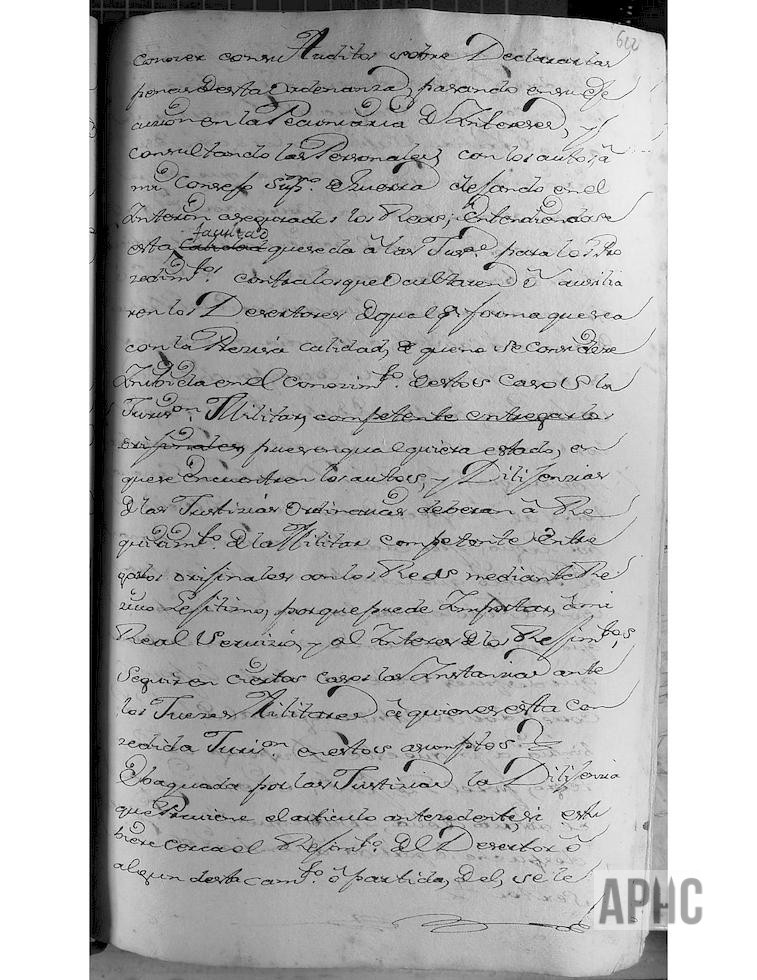 622
conozer con su Auditor sobre Declarar las
penas desta ordenanza, pasando en su eje
cuzion en la Pecuniaria de Intereses, y
consultando las Personales con los autos â
mi Consejo Supmo. de Guerra dejando en el
Interin asegurados los Reos; Entendiendose
facultad
esta que se da â las Juss. para los Pro
zedimtos. contra los que Ocultaren ô auxilia
ren los Desertores de qual qr. forma que sea
con la Prezisa calidad, de que no se considere
Inibida en el conozimto. destos casos la
Jurison. Militar, competente entregar los
orijinales, pues en qualquiera estado, en
que se encuentren los autos, y Dilijenzias
de las Justizias Ordinarias deberan â Re
quirimto. de la Militar competente Entre
garlos orijinales con los Reos mediante Re
zivo Lejitimo, porque puede Importar, â mi
Real Servizio, y al Interes de los Rejimtos,
seguir en ciertos casos las Instanzias ante
los Juezes Militares â quienes esta con
zedida Jurion. en estos asumptos.
Ebaquada por las Justizias la Dilijenzia
que Previene el articulo antezedente, si estu
biere cerca el Rejimto. del Desertor ô
algun destacamto. ô partida, del, se le
APHC